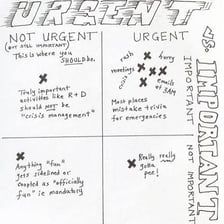 URGENT
vs. IMPORTANT
NOT URGENT
(BUT STILL IMPORTANT)
This is where you
SHOULD be.
Truly important
activities like R+D
should NOT be
"crisis management"
URGENT
rush
hurry
meetings
emails
at 3AM
Most places
mistake trivia
for emergencies
IMPORTANT
Anything "fun"
gets sidelined or
coopted as "officially
fun" ie mandatory
Really really
gotta
pee!
NOT IMPORTANT